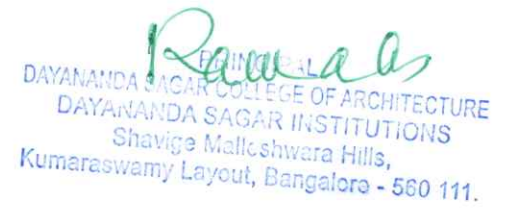 PRINCIPAL
DAYANANDA SAGAR COLLEGE OF ARCHITECTURE
DAYANANDA SAGAR INSTITUTIONS
Shavige Malleshwara Hills,
Kumaraswamy Layout, Bangalore - 560 111.